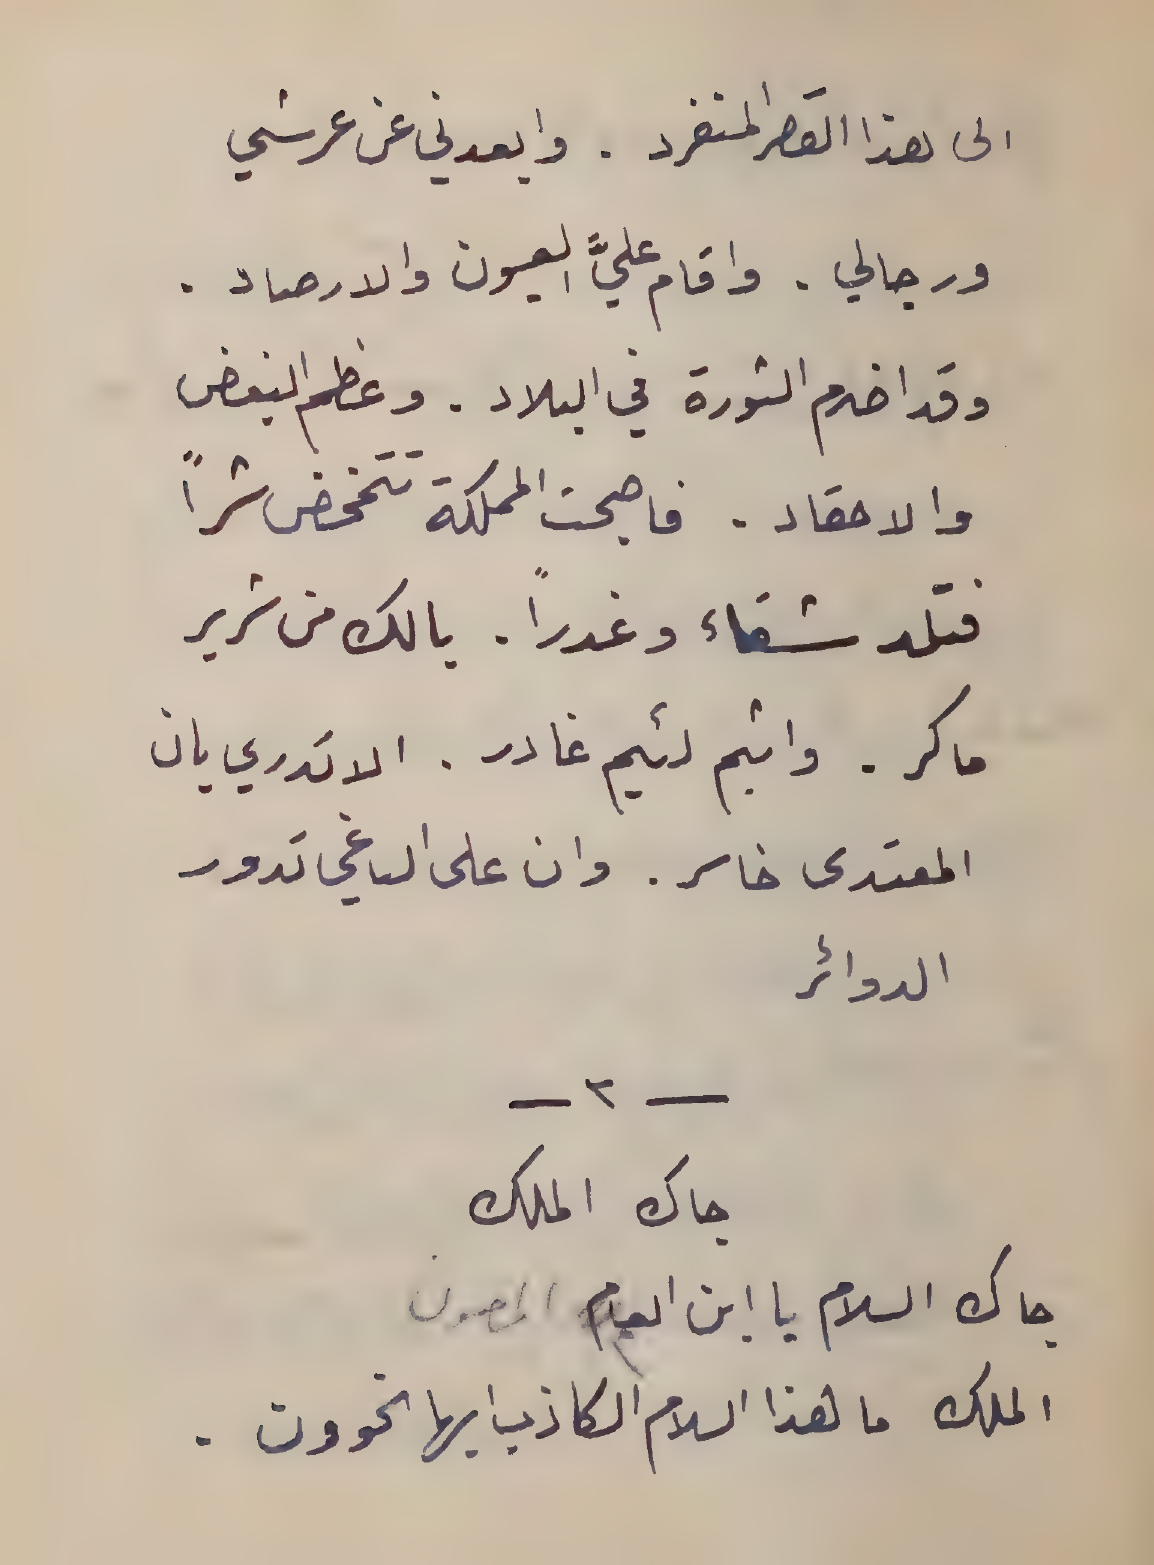 الى هذا القصر المنفرد . وابعدني عن عرشي
ورجالي . واقام عليَّ العيون والارصاد .
وقد اضرم الثورة في البلاد . وعظم البغض
والاحقاد . فاصبحت المملكة تتمخض شراً
فتلد شقاء وغدراً . يالك من شرير
ماكر . واثيم لئيم غادر . الا تدري بان
المعتدى خاسر . وان على الباغي تدور
الدوائر
— ٢ —
جاك الملك
جاك السلام يا ابن العم المصون
الملك ما هذا السلام الكاذب ايها الخوون .